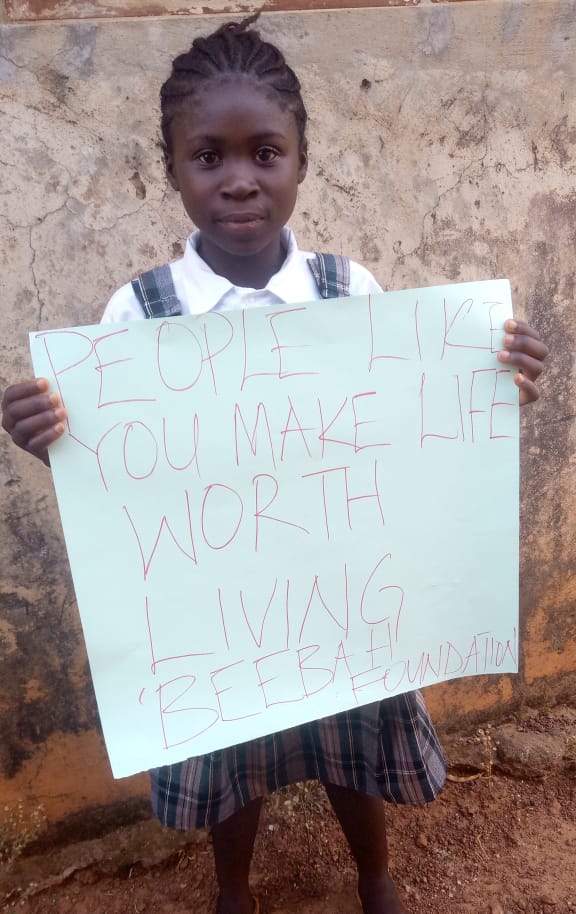 PEOPLE LIKE
YOU MAKE LIFE
WORTH
LIVING
'BEEBAH FOUNDATION